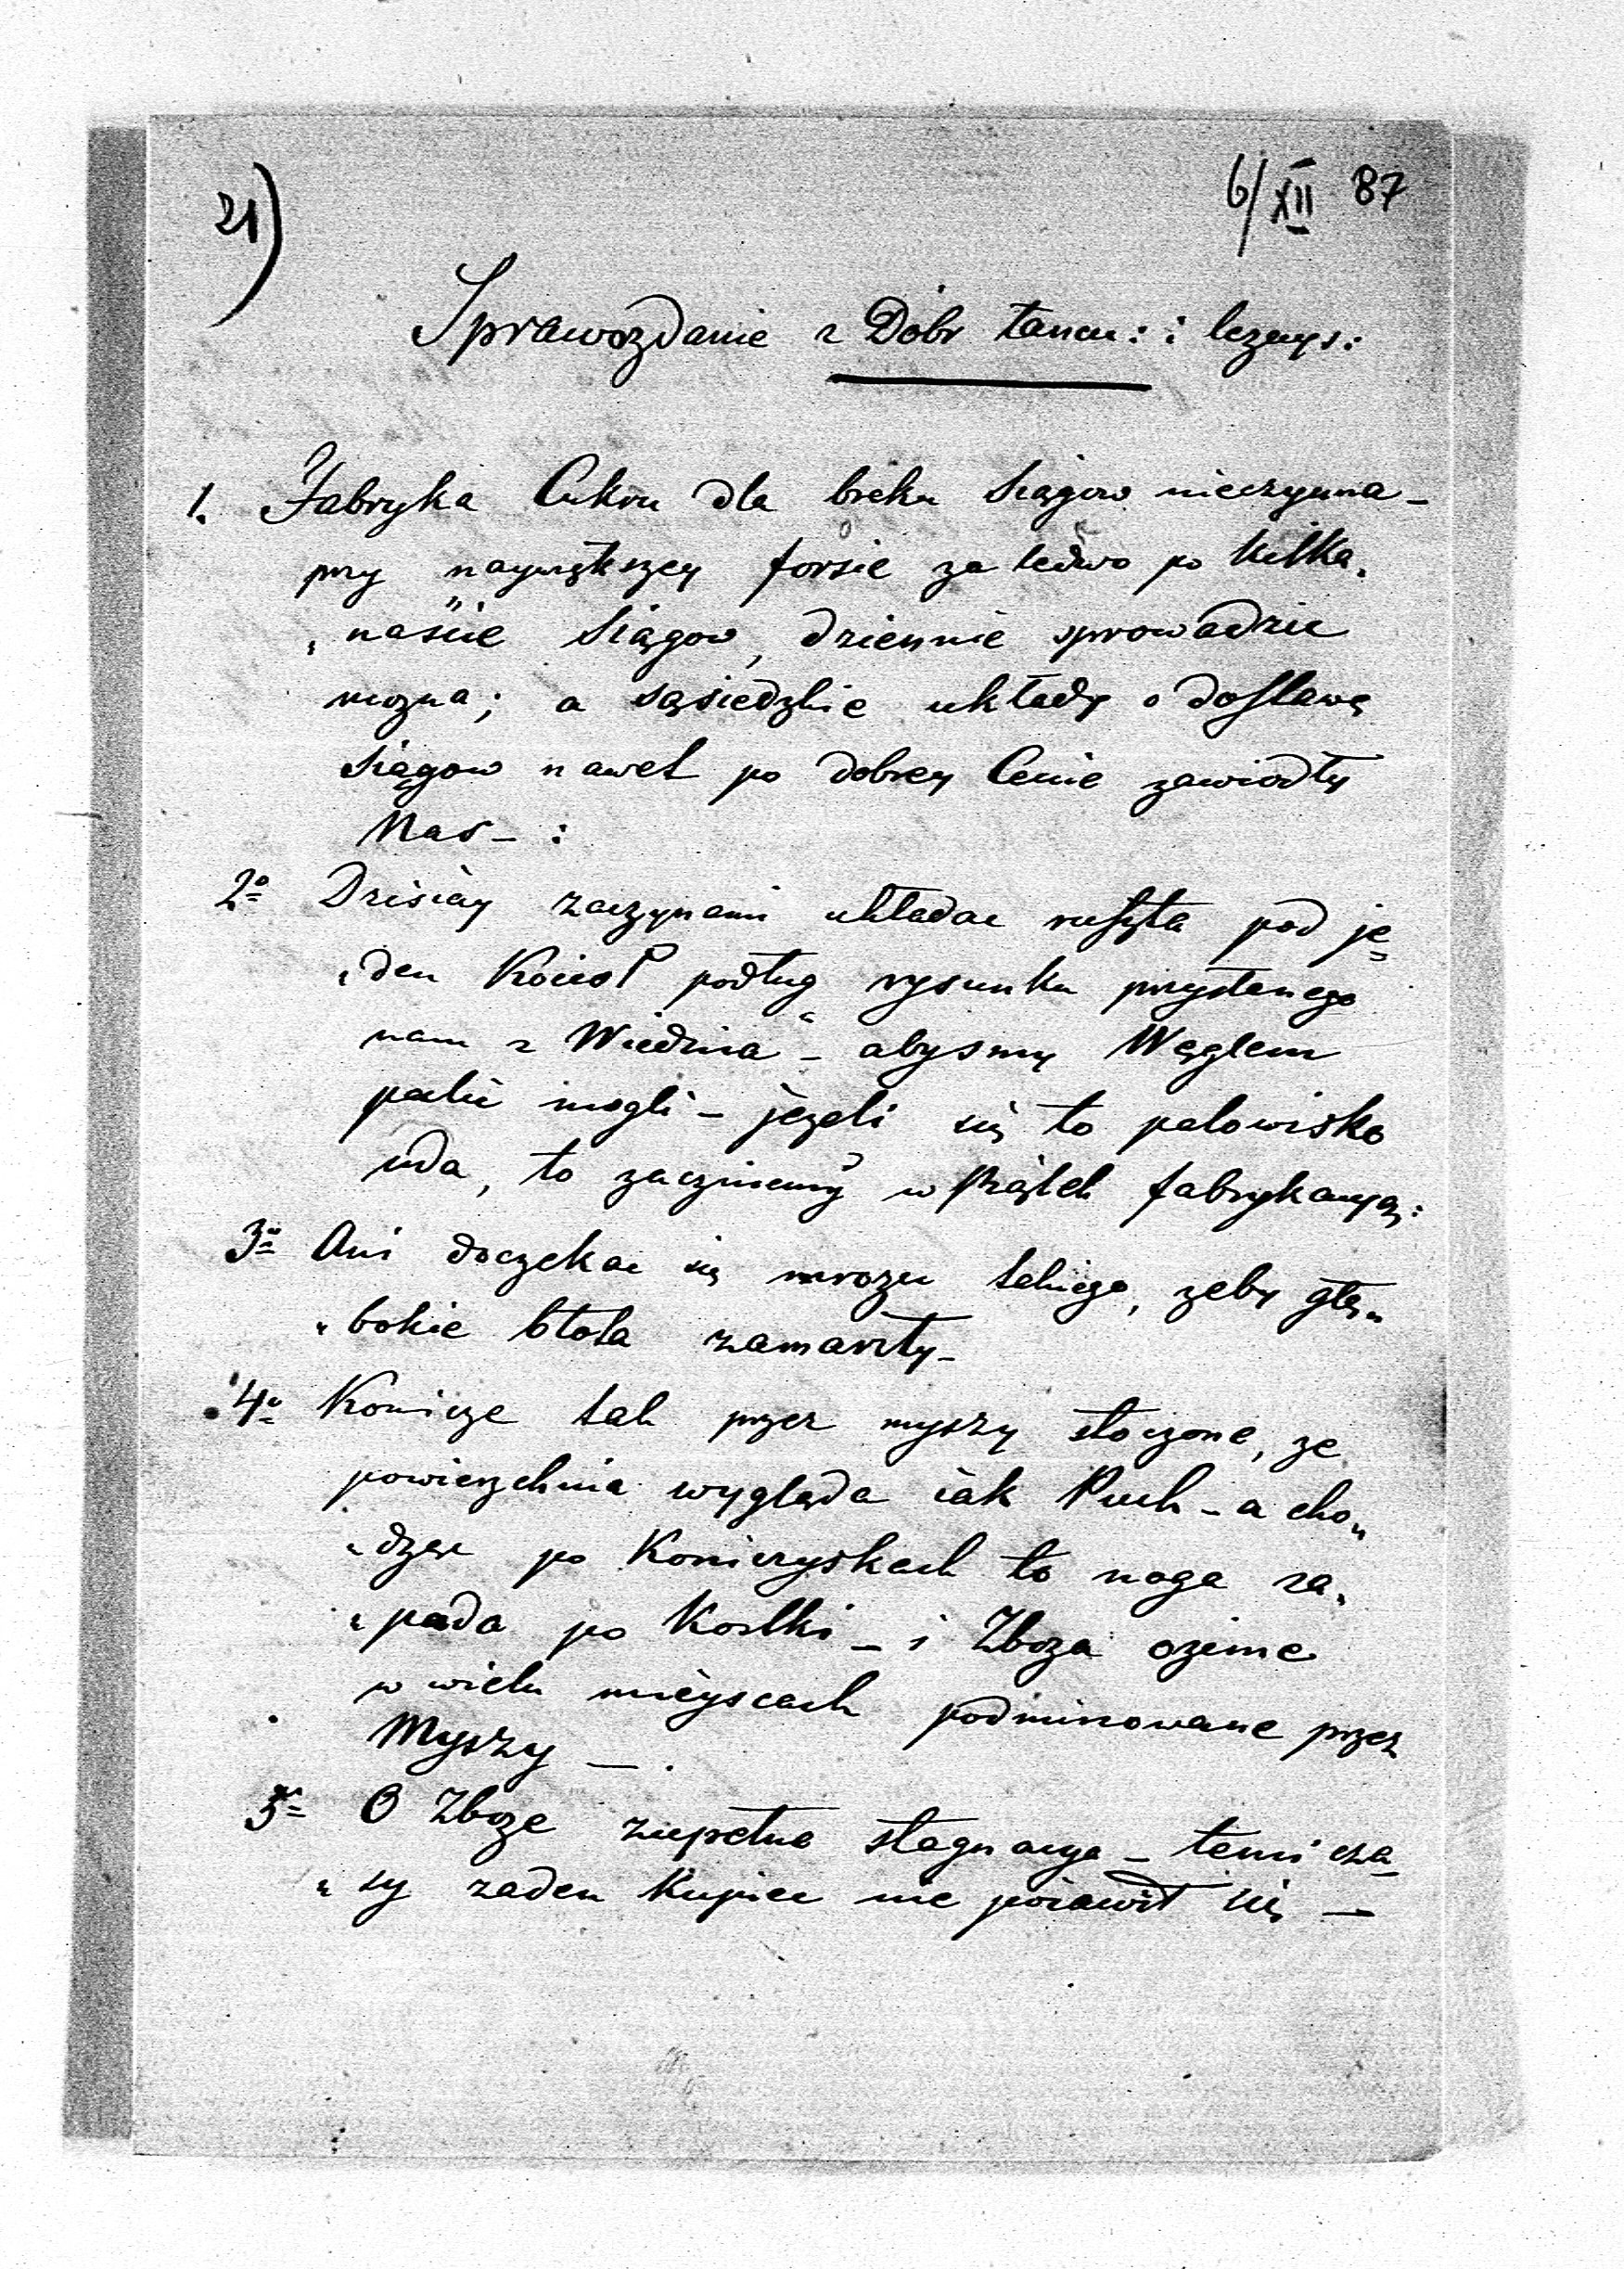 21)
6/XII 87
Sprawozdanie z Dóbr łancu: i leżays:
1. Fabryka Cukru dla braku Siągow nieczynna -
przy naywiększey forsie za ledwo po kilka,
„naście Siągow, dziennie sprowadzic
mozna; a sąsiedzkie układy o dostawę
Siągow nawet po dobrey Cenie zawiodły
Nas - :
2º Dzisiay zaczynami układac ruszta pod je=
„den Kocioł podług rysunku przysłanego
nam z Wiednia - abysmy Węglem
palić mogli - jeżeli się to palowisko
uda, to zaczniemy w Piątek fabrykacyą:
3º Ani doczekac się mrozu takiego, zeby głę„
„bokie błota zamarzły -
4º Konicze tak przez myszy stoczone, ze
powierzchnia wygląda iak Puch - a cho„
„dząc po Koniczyskach to noga za„
„pada po Kostki - i Zboza ozime
w wielu mieyscach podminowane przez
Myszy - .
5º O Zboze zupełna stagnacya - temi cza=
„sy zaden Kupiec nie poiawił się -